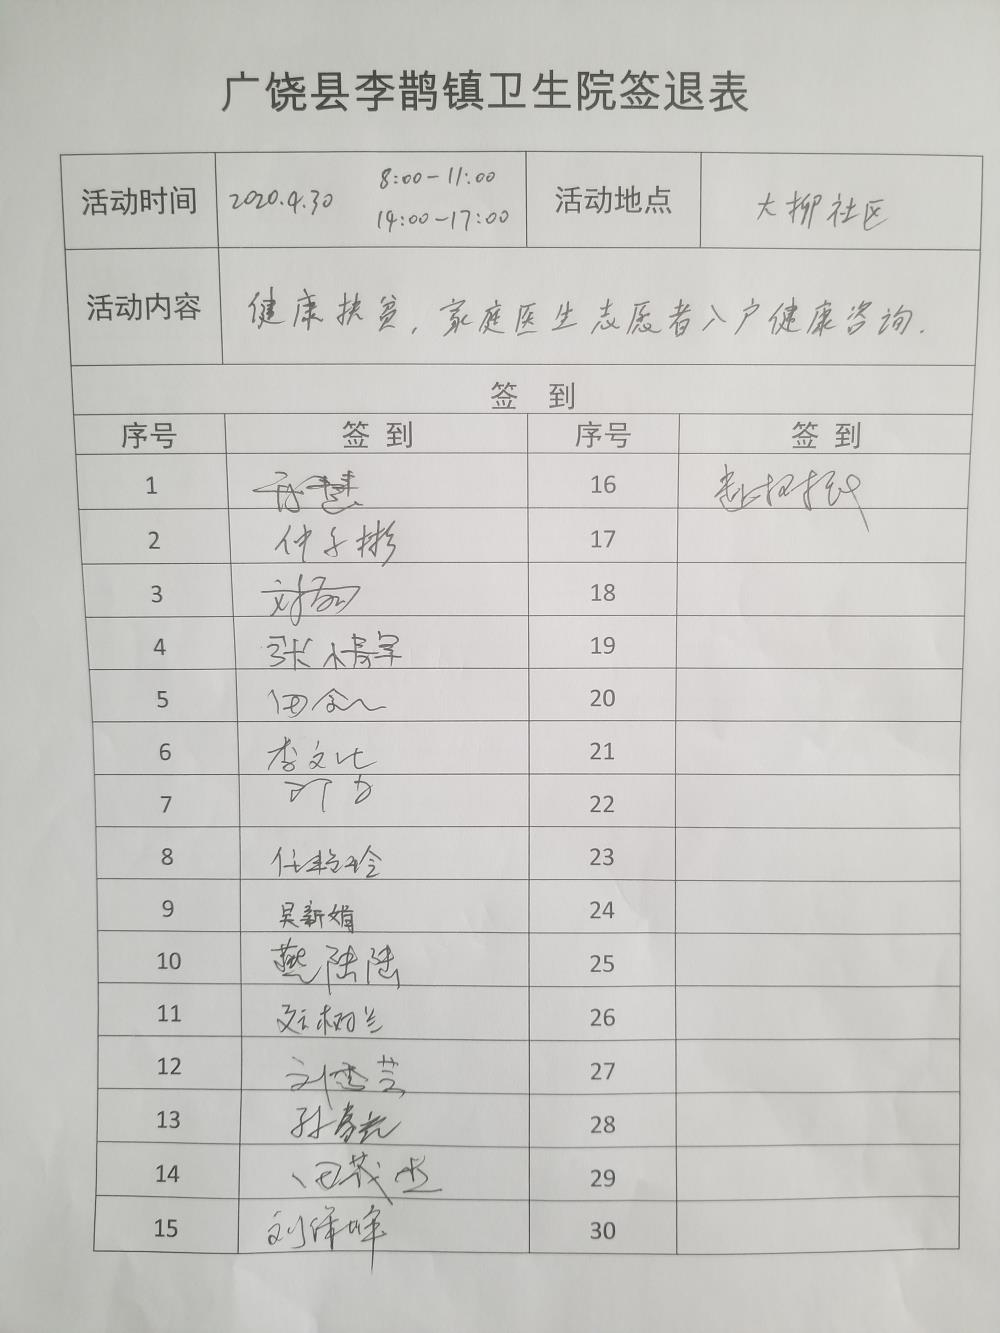 广饶县李鹊镇卫生院签退表
活动时间 2020.4.30 8:00-11:00 14:00-17:00 活动地点 大柳社区
活动内容 健康扶贫,家庭医生志愿者入户健康咨询.
签 到
序号 签到 序号 签到
1 16
2 仲子彬 17
3 18
4 19
5 20
6 李文 21
7 22
8 任艳玲 23
9 吴新娟 24
10 燕陆陆 25
11 26
12 27
13 孙 28
14 田茂 29
15 刘 30